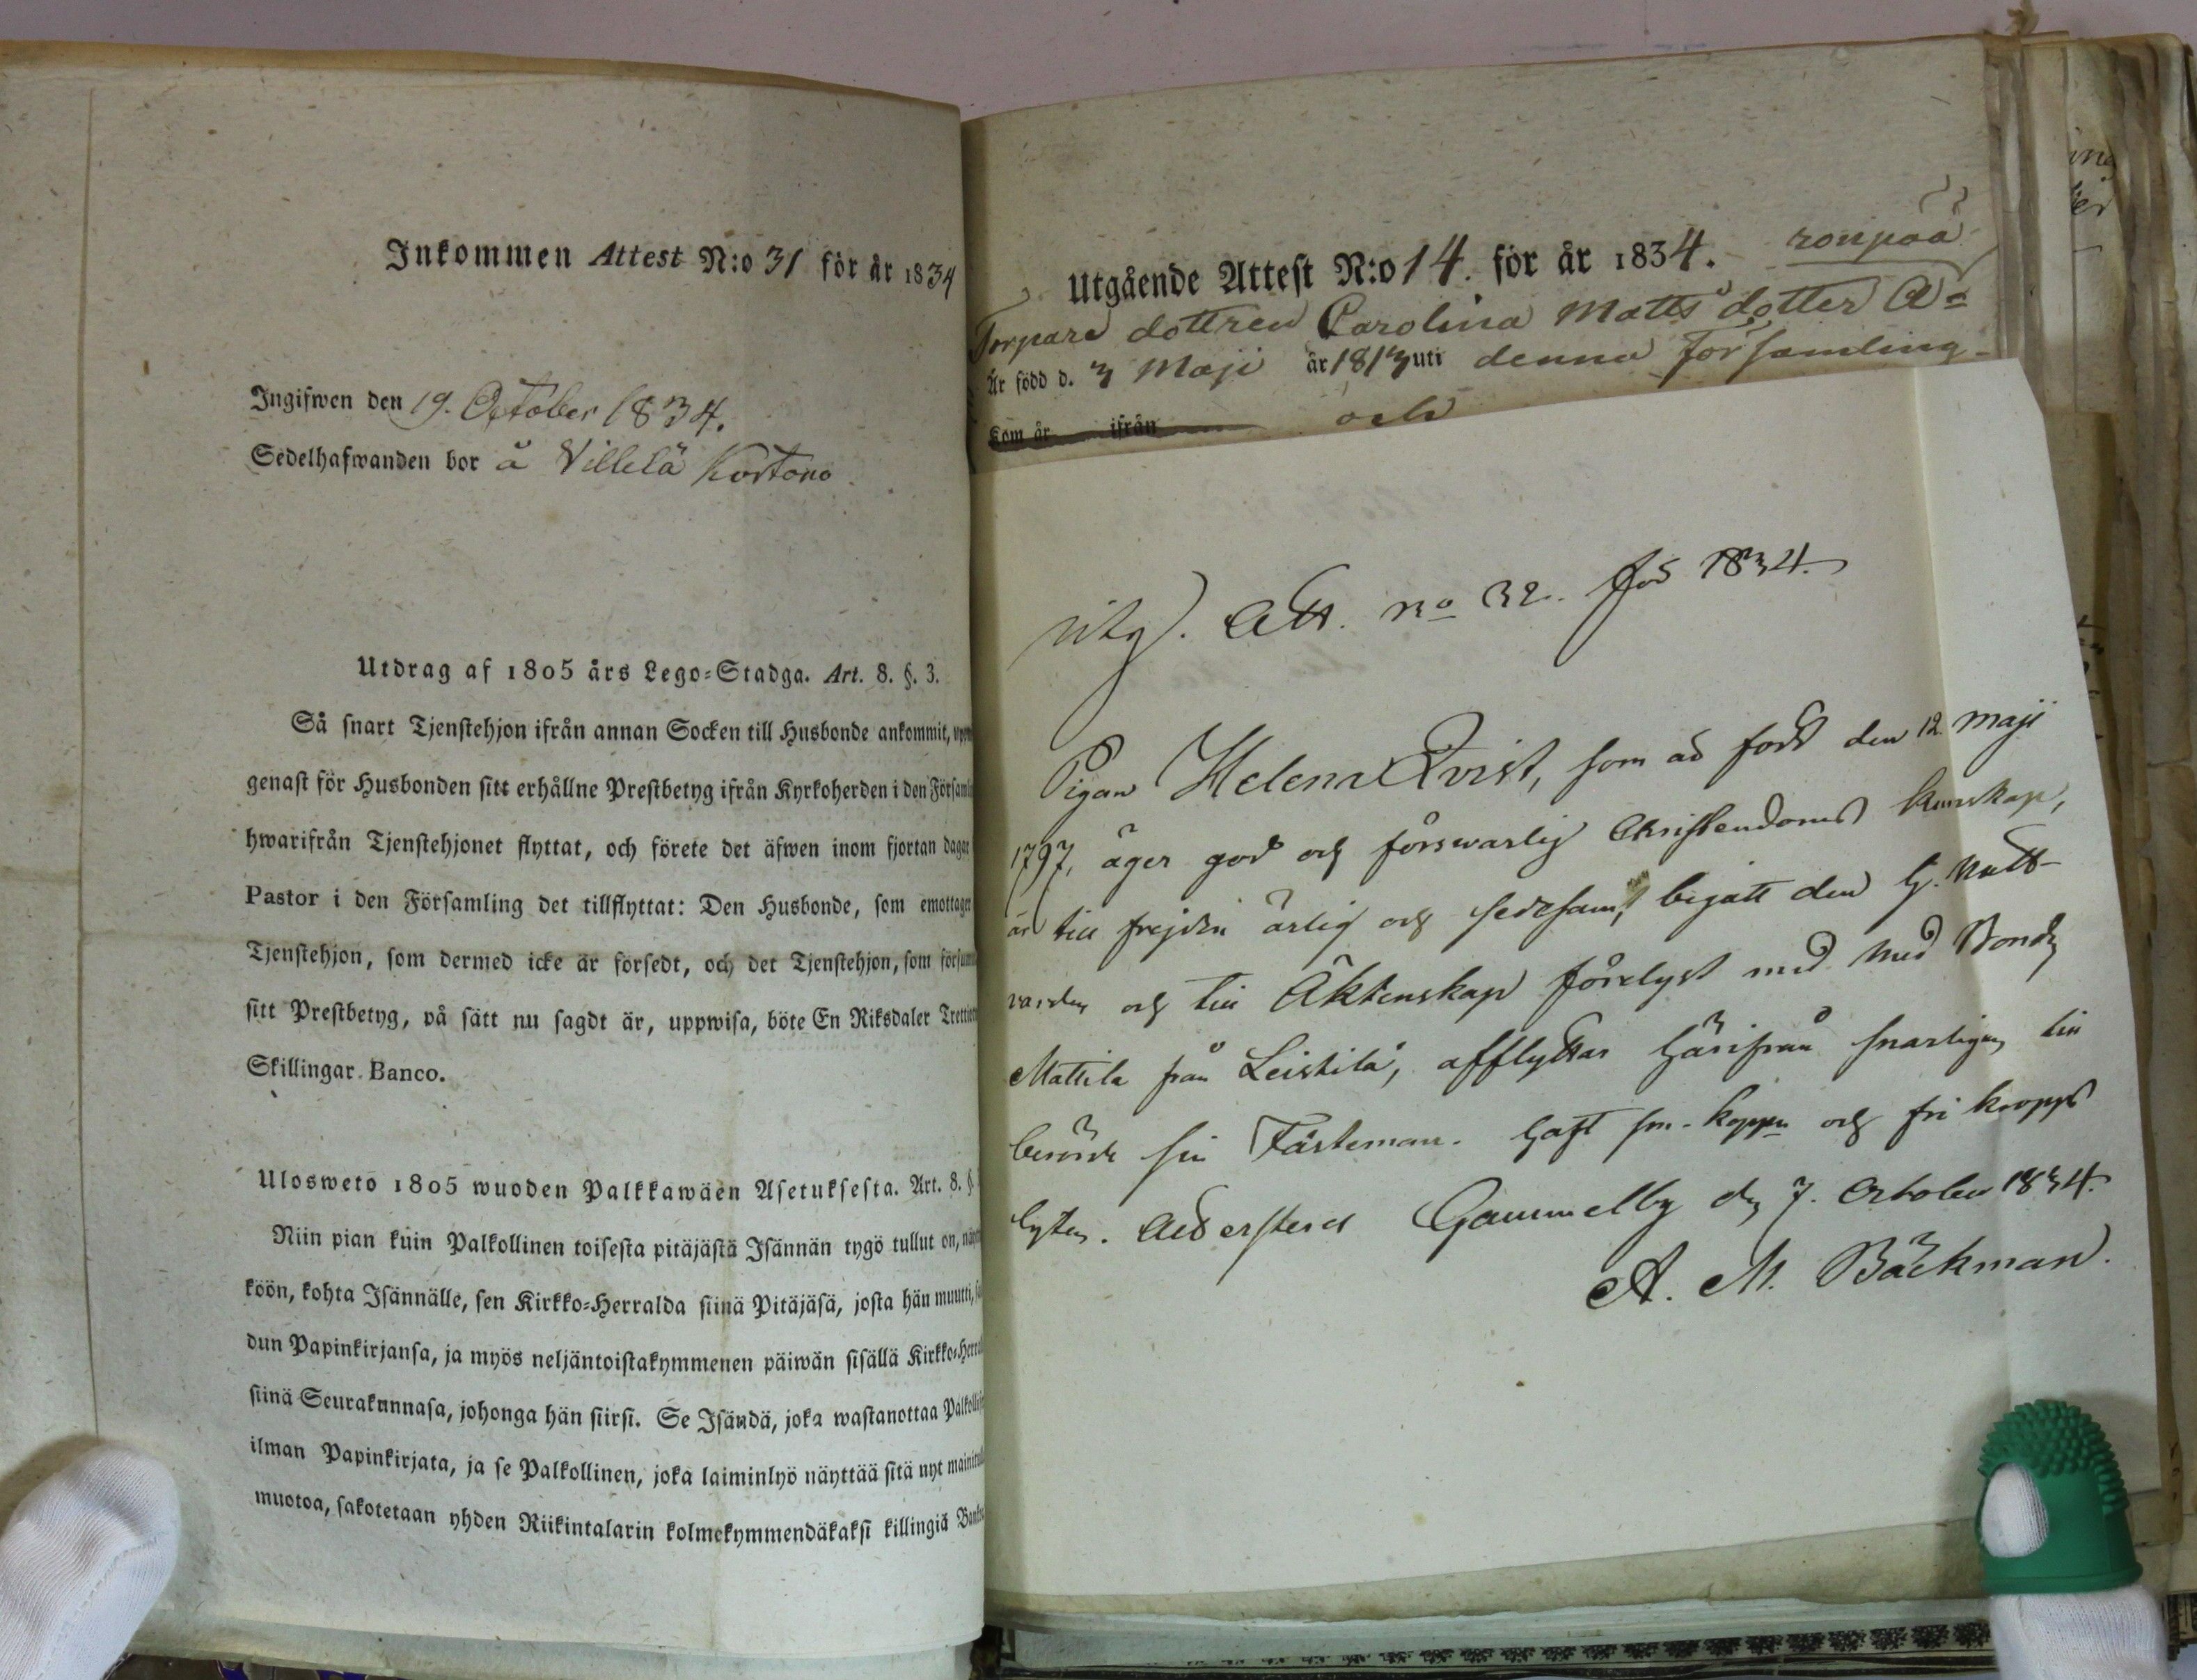 Inkommen Attest N:o 31 för år 1834
Ingifwen den 19. October 1834.
Sedelhafwanden bor å Villilä Kortono
Utdrag af 1805 års Lego-Stadga. Art. 8. §. 3.
Så snart Tjenstehjon ifrån annan Socken till Husbonde ankommit,
genast för Husbonden sitt erhållne Prestbetyg ifrån Kyrkoherden i den Församl
hwarifrån Tjenstehjonet flyttat, och förete det äfwen inom fjortan dagar
Pastor i den Församling det tillflyttat: Den Husbonde, som emottager
Tjenstehjon, som dermed icke är försedt, och det Tjenstehjon, som försum
sitt Prestbetyg, på sätt nu sagdt är, uppwisa, böte En Riksdaler Trettio
Skillingar Banco.
Ulosweto 1805 wuoden Palkkawäen Asetuksesta. Art. 8. §.
Niin pian kuin Palkollinen toisesta pitäjästä Isännän tygö tullut on,
köön, kohta Isännälle, sen Kirkko-Herralda siinä Pitäjäsä, josta hän muutti,
dun Papinkirjansa, ja myös neljäntoistakymmenen päiwän sisällä Kirkko-Herra
siinä Seurakunnasa, johonga hän siirsi. Se Isändä, joka wastanottaa Palkollis
ilman Papinkirjata, ja se Palkollinen, joka laiminlyö näyttää sitä nyt mainitulla
muotoa, sakotetaan yhden Riikintalarin kolmekymmendäkaksi killingiä Banko
Utgående Attest N:o 14. för år 1834. ronpää
Torpare dottren Carolina Matts dotter A=
Är född d. 3 Maji år 1813 uti denna församling
Kom år ifrån och
Utg. Att. No 32. för 1834.
Pigan Helena Qvist, som är född den 12 Maji
1797, äger god och förswarlig Christendoms kunskap,
är till frejden ärlig och sedesam, begått den H. Natt-
varden och till Äktenskap förelyst med Bonden
Mattila från Leistilä, afflyttar härifrån snarligen till
berörde sin Fästeman. Haft sm. koppor och fri kropps
lyten. Attesteras Gammelby den 7. October 1834.
A. M. Bäckman.